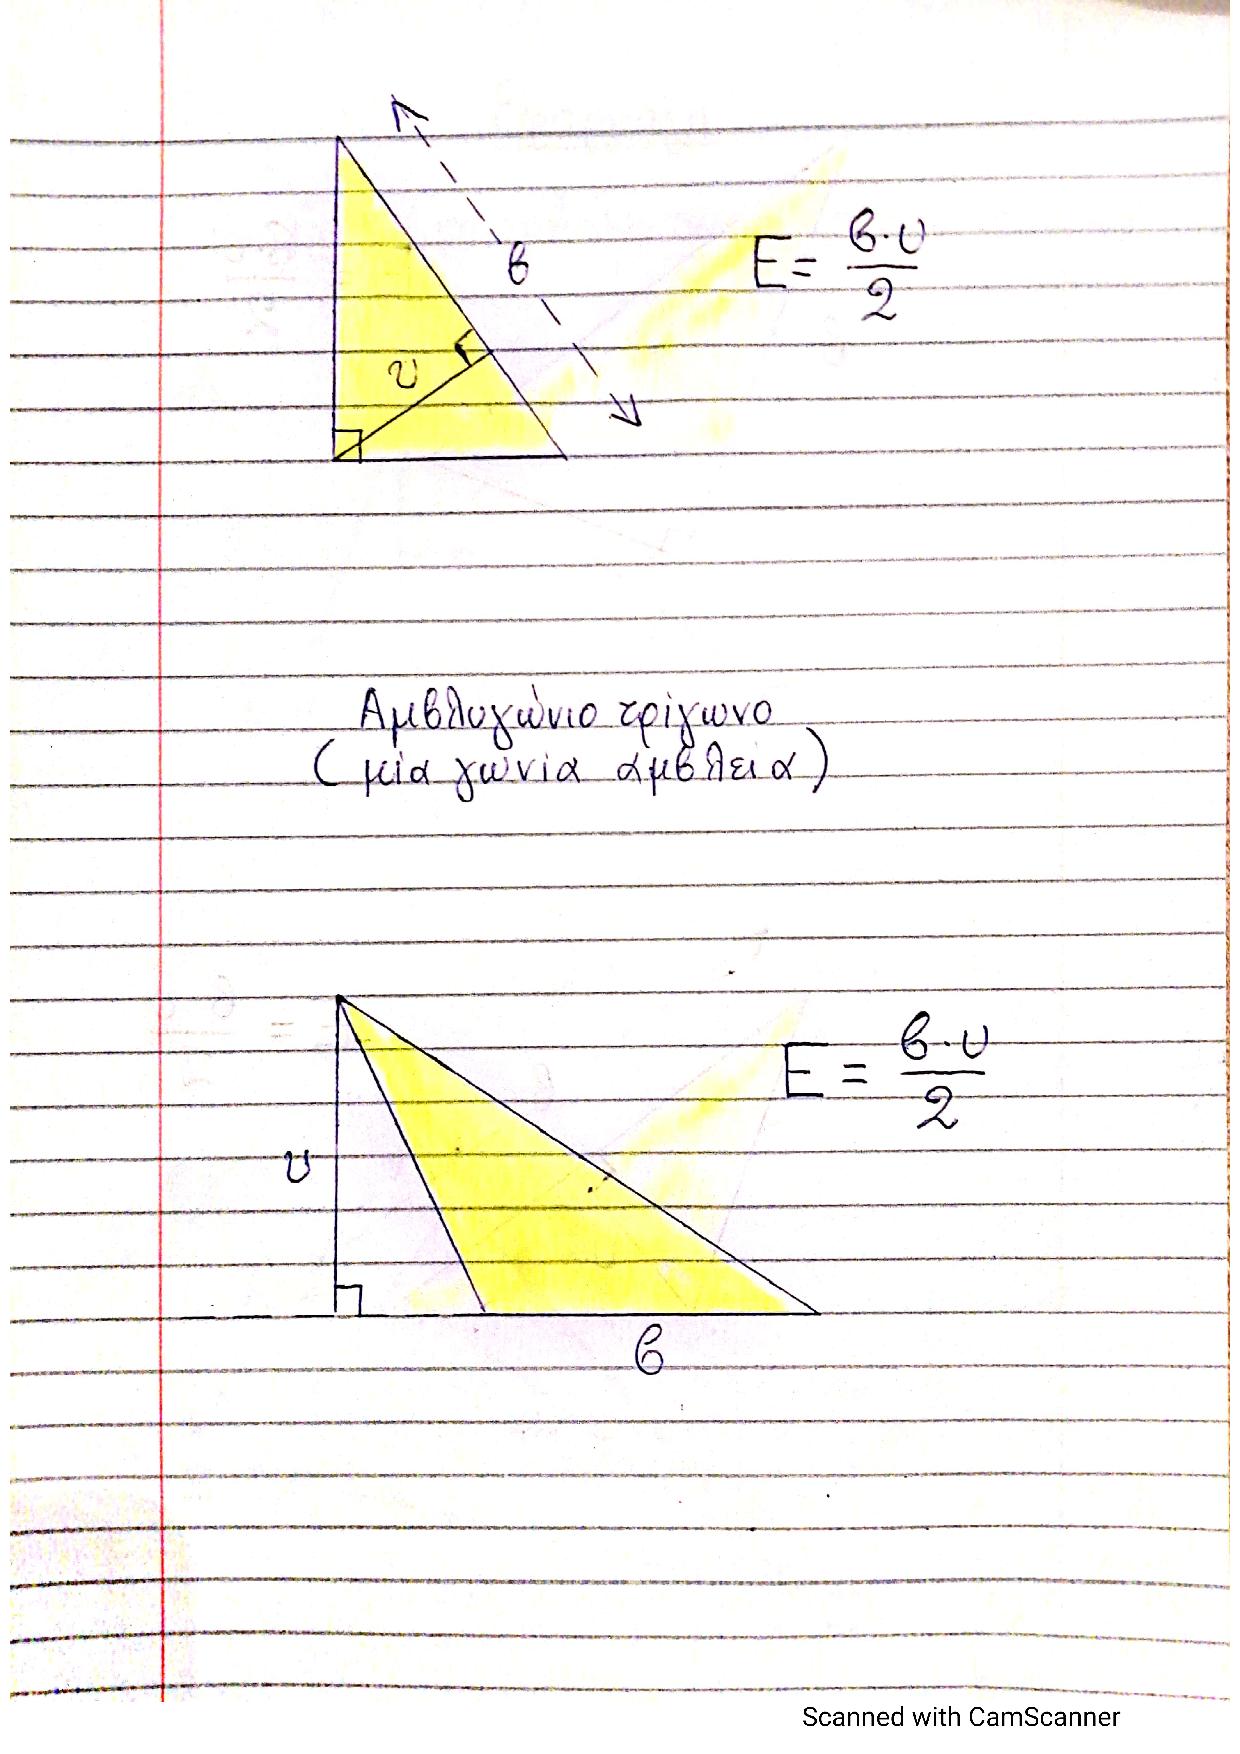 β
υ
E = β·υ/2
Αμβλυγώνιο τρίγωνο
(μία γωνία αμβλεία)
υ
E = β·υ/2
β
Scanned with CamScanner